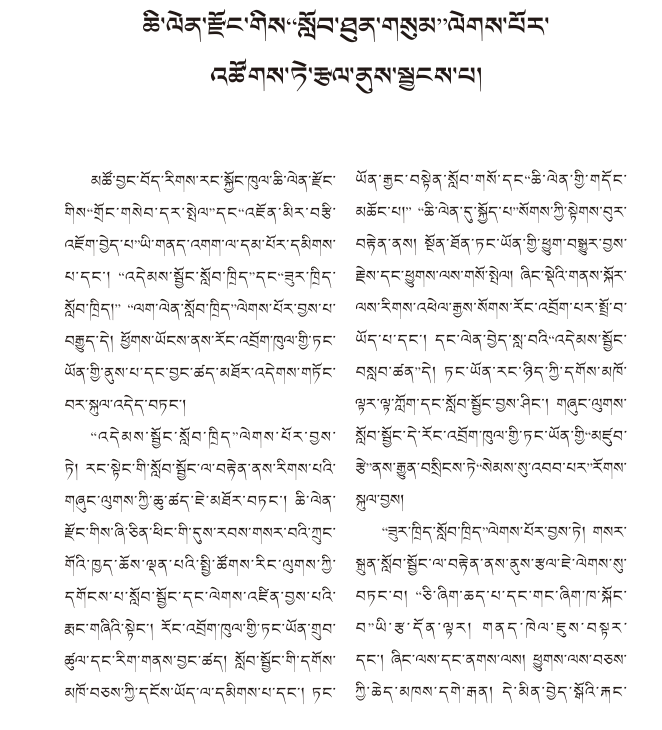 ཆི་ལེན་རྫོང་གིས“སློབ་ཐུན་གསུམ”ལེགས་པོར་
འཚོགས་ཏེ་རྩལ་ནུས་སྦྱངས་པ།
མཚོ་བྱང་བོད་རིགས་རང་སྐྱོང་ཁུལ་ཆི་ལེན་རྫོང་
གིས“གྲོང་གསེབ་དར་སྤེལ”དང“འཛོན་མིར་བརྩི་
འཇོག་བྱེད་པ”ཡི་གནད་འགག་ལ་དམ་པོར་དམིགས་
པ་དང་། “འདེམས་སྦྱོང་སློབ་ཁྲིད”དང“ཟུར་ཁྲིད་
སློབ་ཁྲིད།” “ལག་ལེན་སློབ་ཁྲིད”ལེགས་པོར་བྱས་པ་
བརྒྱུད་དེ། ཕྱོགས་ཡོངས་ནས་རོང་འབྲོག་ཁུལ་གྱི་ཏང་
ཡོན་གྱི་ནུས་པ་དང་བྱང་ཚད་མཐོར་འདེགས་གཏོང་
བར་སྐུལ་འདེད་བཏང་།
“འདེམས་སྦྱོང་སློབ་ཁྲིད”ལེགས་པོར་བྱས་
ཏེ། རང་སྟེང་གི་སློབ་སྦྱོང་ལ་བརྟེན་ནས་རིགས་པའི་
གཞུང་ལུགས་ཀྱི་ཆུ་ཚད་ཇེ་མཐོར་བཏང་། ཆི་ལེན་
རྫོང་གིས་ཞི་ཅིན་ཕིང་གི་དུས་རབས་གསར་བའི་ཀྲུང་
གོའི་ཁྱད་ཆོས་ལྡན་པའི་སྤྱི་ཚོགས་རིང་ལུགས་ཀྱི་
དགོངས་པ་སློབ་སྦྱོང་དང་ལེགས་འཛིན་བྱས་པའི་
རྨང་གཞིའི་སྟེང་། རོང་འབྲོག་ཁུལ་གྱི་ཏང་ཡོན་གྲུབ་
ཚུལ་དང་རིག་གནས་བྱང་ཚད། སློབ་སྦྱོང་གི་དགོས་
མཁོ་བཅས་ཀྱི་དངོས་ཡོད་ལ་དམིགས་པ་དང་། ཏང་
ཡོན་རྒྱང་བསྟེན་སློབ་གསོ་དང“ཆི་ལེན་གྱི་གདོང་
མཆོང་པ།” “ཆི་ལེན་དུ་སྐྱོད་པ”སོགས་ཀྱི་སྟེགས་བུར་
བརྟེན་ནས། སྔོན་ཐོན་ཏང་ཡོན་གྱི་ཕྱུག་བསྒྱུར་བྱས་
རྗེས་དང་ཕྱུགས་ལས་གསོ་སྤེལ། ཞིང་སྡེའི་གནས་སྐོར་
ལས་རིགས་འཕེལ་རྒྱས་སོགས་རོང་འབྲོག་པར་སྤྲོ་བ་
ཡོད་པ་དང་། དང་ལེན་བྱེད་སླ་བའི“འདེམས་སྦྱོང་
བསླབ་ཚན”དེ། ཏང་ཡོན་རང་ཉིད་ཀྱི་དགོས་མཁོ་
ལྟར་ལྟ་ཀློག་དང་སློབ་སྦྱོང་བྱས་ཤིང་། གཞུང་ལུགས་
སློབ་སྦྱོང་དེ་རོང་འབྲོག་ཁུལ་གྱི་ཏང་ཡོན་གྱི“མཛུབ་
རྩེ”ནས་རྒྱུན་བསྲིངས་ཏེ“སེམས་སུ་འབབ་པར”རོགས་
སྐུལ་བྱས།
“ཟུར་ཁྲིད་སློབ་ཁྲིད”ལེགས་པོར་བྱས་ཏེ། གསར་
སྐྲུན་སློབ་སྦྱོང་ལ་བརྟེན་ནས་ནུས་རྩལ་ཇེ་ལེགས་སུ་
བཏང་བ། “ཅི་ཞིག་ཆད་པ་དང་གང་ཞིག་ཁ་སྐོང་
བ”ཡི་རྩ་དོན་ལྟར། གནད་ཁེལ་ཇུས་བསྟར་
དང་། ཞིང་ལས་དང་ནགས་ལས། ཕྱུགས་ལས་བཅས་
ཀྱི་ཆེད་མཁས་དགེ་རྒན། དེ་མིན་བྱེད་སྒོའི་རྐང་